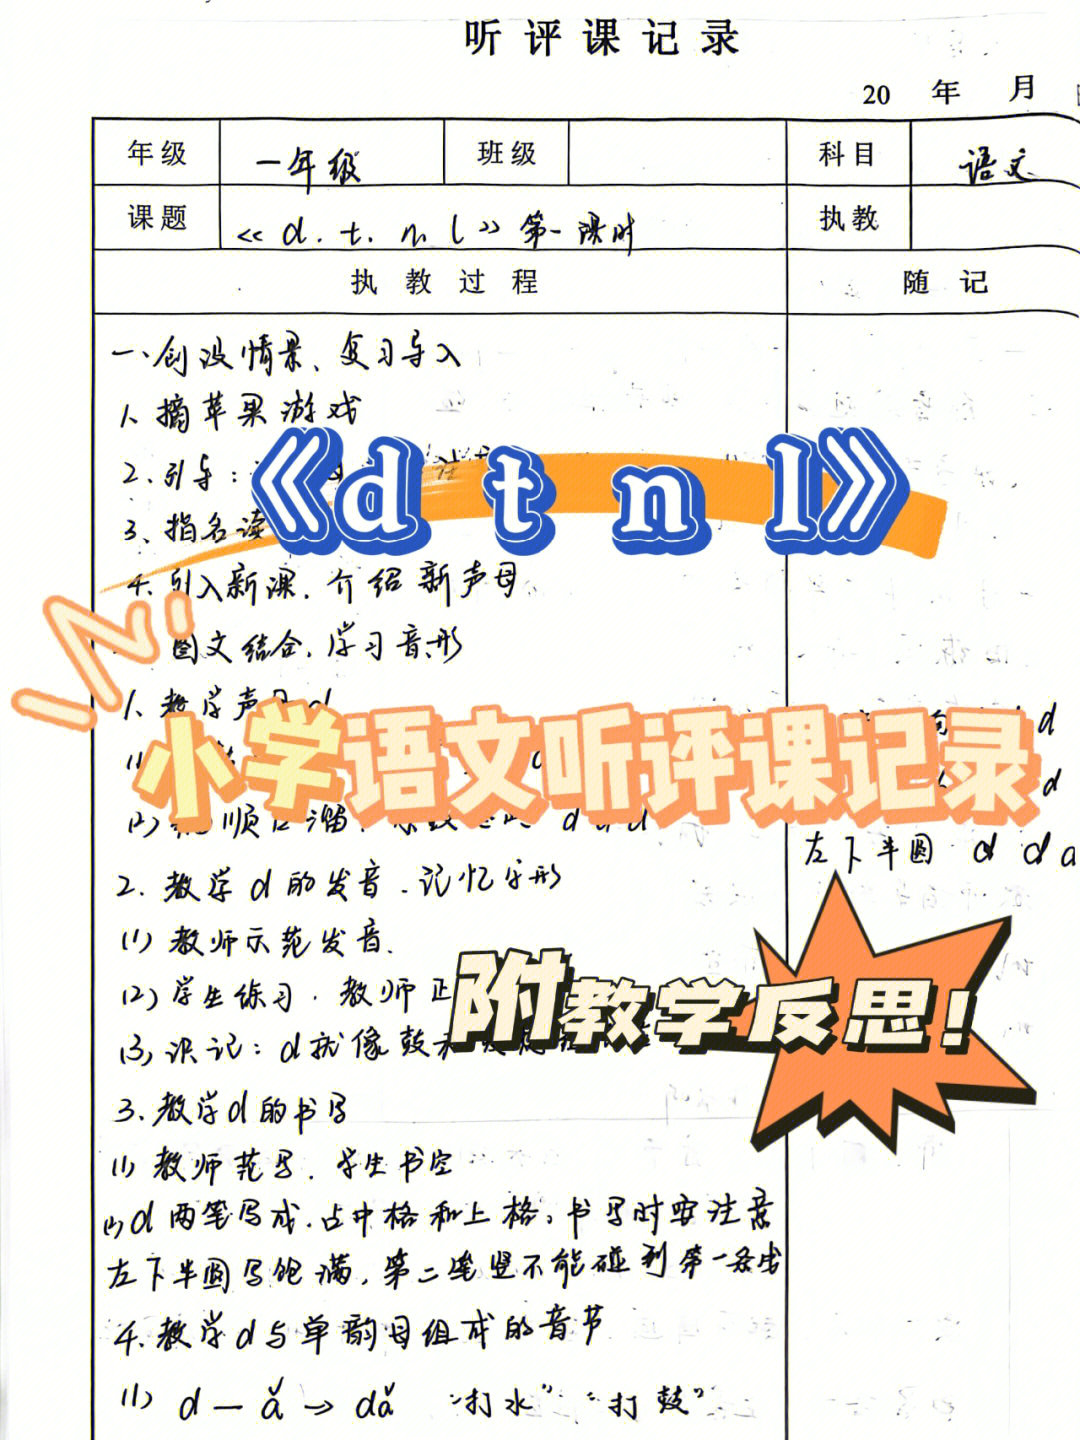 听评课记录
20 年 月
年级 一年级 班级 科目 语文
课题 《d.t.n.l》第一课时 执教
执教过程 随记
一、创设情景、复习导入
1、摘苹果游戏
2、引导:
《d t n l》
3、指名读
4、引入新课,介绍新声母
图文结合,学习音形
1、教学声母d
d
小学语文听评课记录
d
顺口溜
左下半圆 d d d
2、教学d的发音、记忆字形
(1)教师示范发音.
(2)学生练习,教师正
附教学反思!
(3)识记:d就像鼓
3、教学d的书写
(1)教师范写,学生书空
(2)d两笔写成,占中格和上格,书写时要注意
左下半圆写饱满,第二笔竖不能碰到第一条线
4、教学d与单韵母组成的音节
(1) d — ǎ → dǎ "打水" "打鼓"